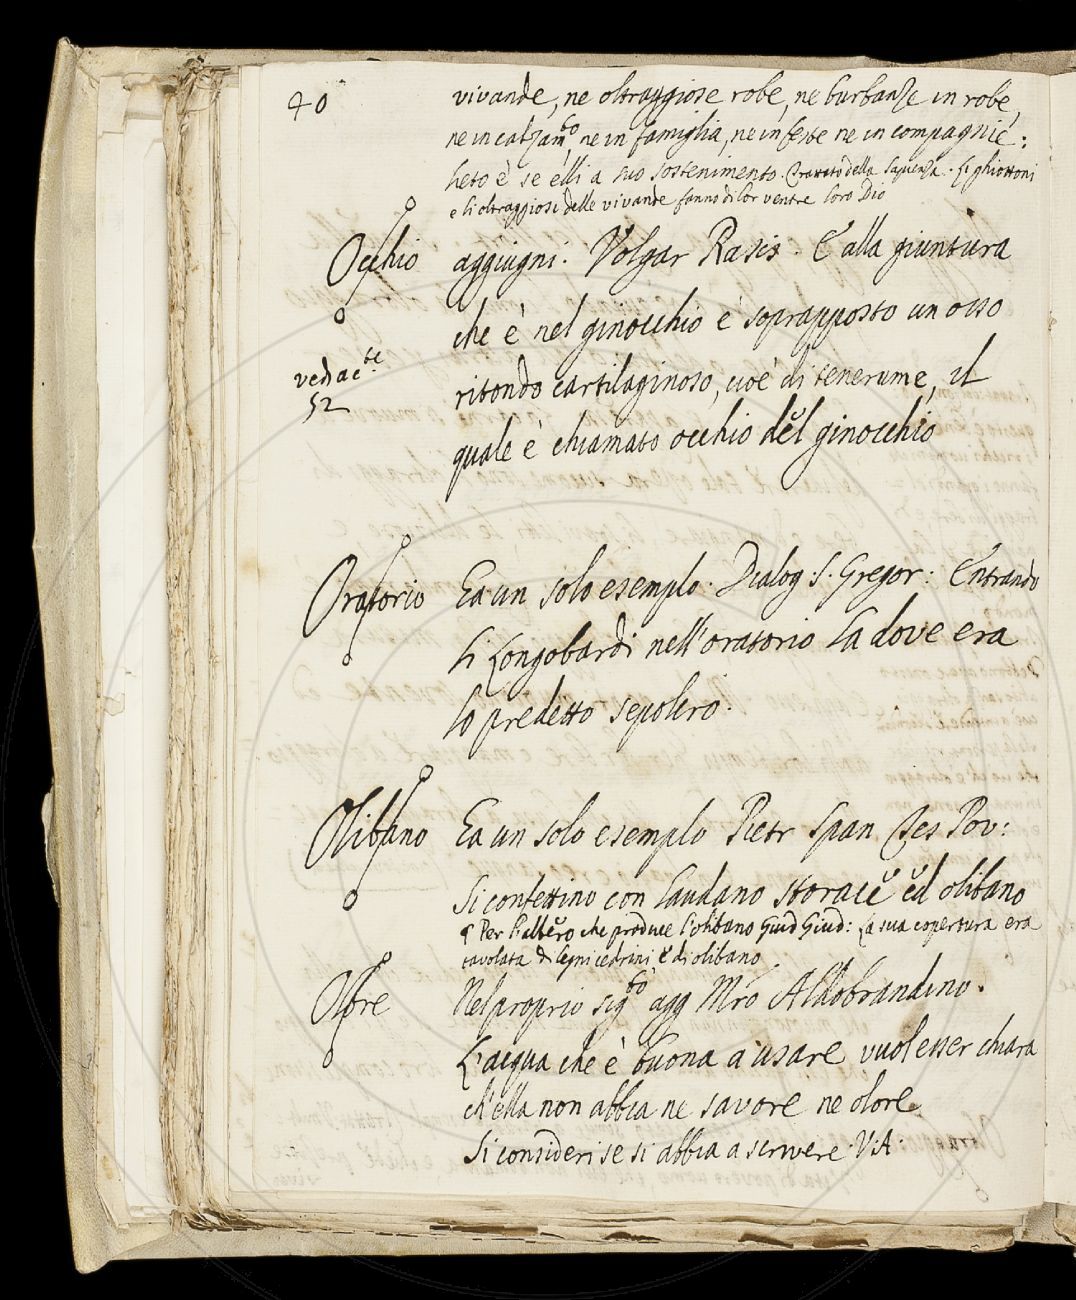 40
vivande, ne oltraggiose robe, ne burbanze in robe,
ne in calzam.to, ne in famiglia, ne in feste ne in compagnie:
lieto è se elli a suo sostenimento. Trattato della Sapienza. Li ghiottoni
e li oltraggiosi delle vivande fanno di lor ventre loro Dio
Occhio aggiugni. Volgar Rasis. E alla giuntura
che è nel ginocchio è soprapposto un osso
vedi a c.te ritondo cartilaginoso, cioè di tenerume, il
52
quale è chiamato occhio del ginocchio
Oratorio Ea un solo esemplo. Dialog. S. Gregor: Entrando
li Longobardi nell'oratorio la dove era
lo predetto sepolcro.
Olibano Ea un solo esemplo Pietr Span Tes Pov:
Si confettino con laudano storace ed olibano
¶ Per l'albero che produce l'olibano Guid Giud: La sua copertura era
tavolata di legni cedrini e di olibano
Olore Nel proprio sig.to agg Mro Aldobrandino.
L'acqua che è buona a usare vuol esser chiara
ch'ella non abbia ne savore ne olore
Si consideri se si abbia a scrivere V.A.